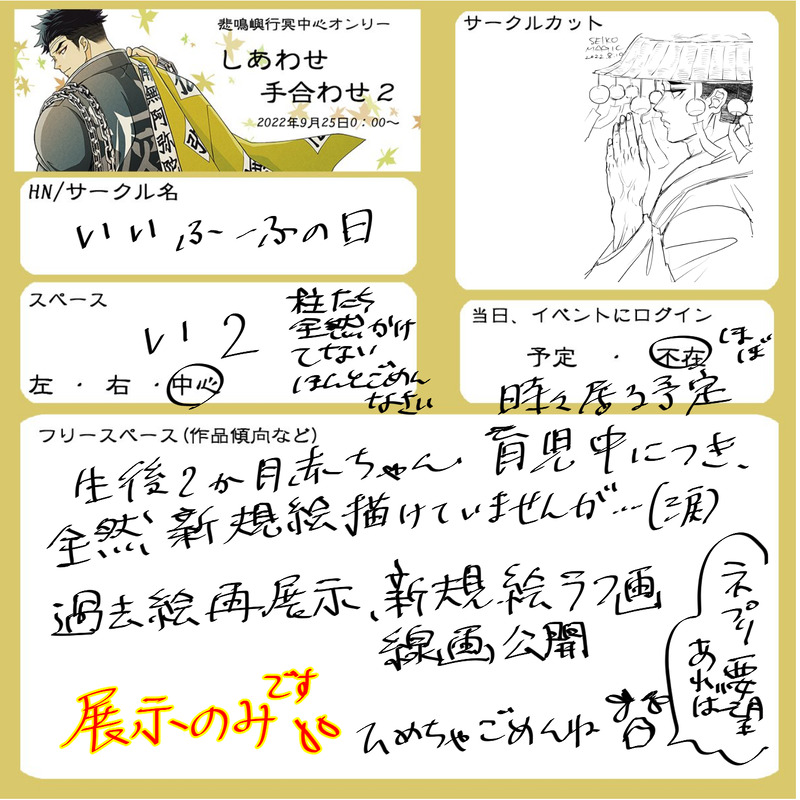 悲鳴嶼行冥中心オンリー
しあわせ
手合わせ2
2022年9月25日0:00~
サークルカット
SEIKO
MAGIC
HN/サークル名
いいふーふの日
スペース
い2
柱たち
全然かけ
てない
ほんとごめん
なさい
左 ・ 右 ・ 中心
当日、イベントにログイン
予定 ・ 不在
ほぼ
時々居る予定
フリースペース(作品傾向など)
生後2か月赤ちゃん育児中につき、
全然新規絵描けていませんが…(涙)
過去絵再展示、新規絵ラフ画
線画公開
ネプリ要望
あれば
展示のみです
ひめちゃごめんね